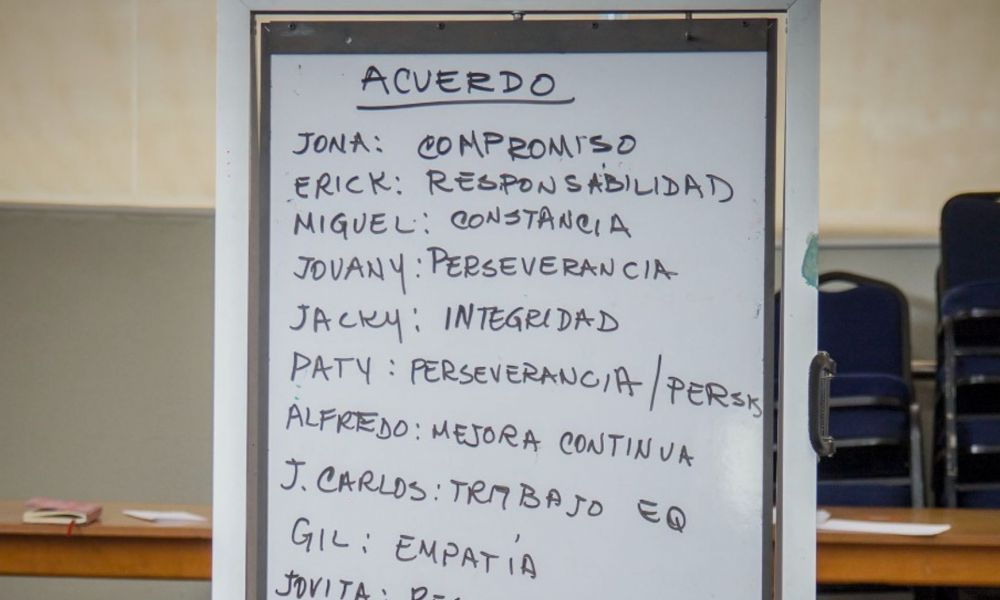 ACUERDO
JONA: COMPROMISO
ERICK: RESPONSABILIDAD
MIGUEL: CONSTANCIA
JOVANY: PERSEVERANCIA
JACKY: INTEGRIDAD
PATY: PERSEVERANCIA/PERSIS
ALFREDO: MEJORA CONTINUA
J. CARLOS: TRABAJO EQ
GIL: EMPATÍA
JOVITA: